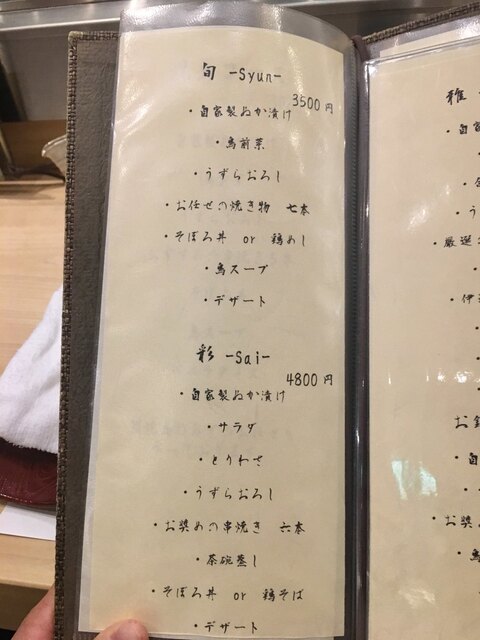 旬 -Syun-
3500 円
・自家製ぬか漬け
・鳥前菜
・うずらおろし
・お任せの焼き物 七本
・そぼろ丼 or 鶏めし
・鳥スープ
・デザート
彩 -Sai-
4800 円
・自家製ぬか漬け
・サラダ
・とりわさ
・うずらおろし
・お奨めの串焼き 六本
・茶碗蒸し
・そぼろ丼 or 鶏そば
・デザート
雅
・自家
・う
・厳選
・伊達
・自
・お奨